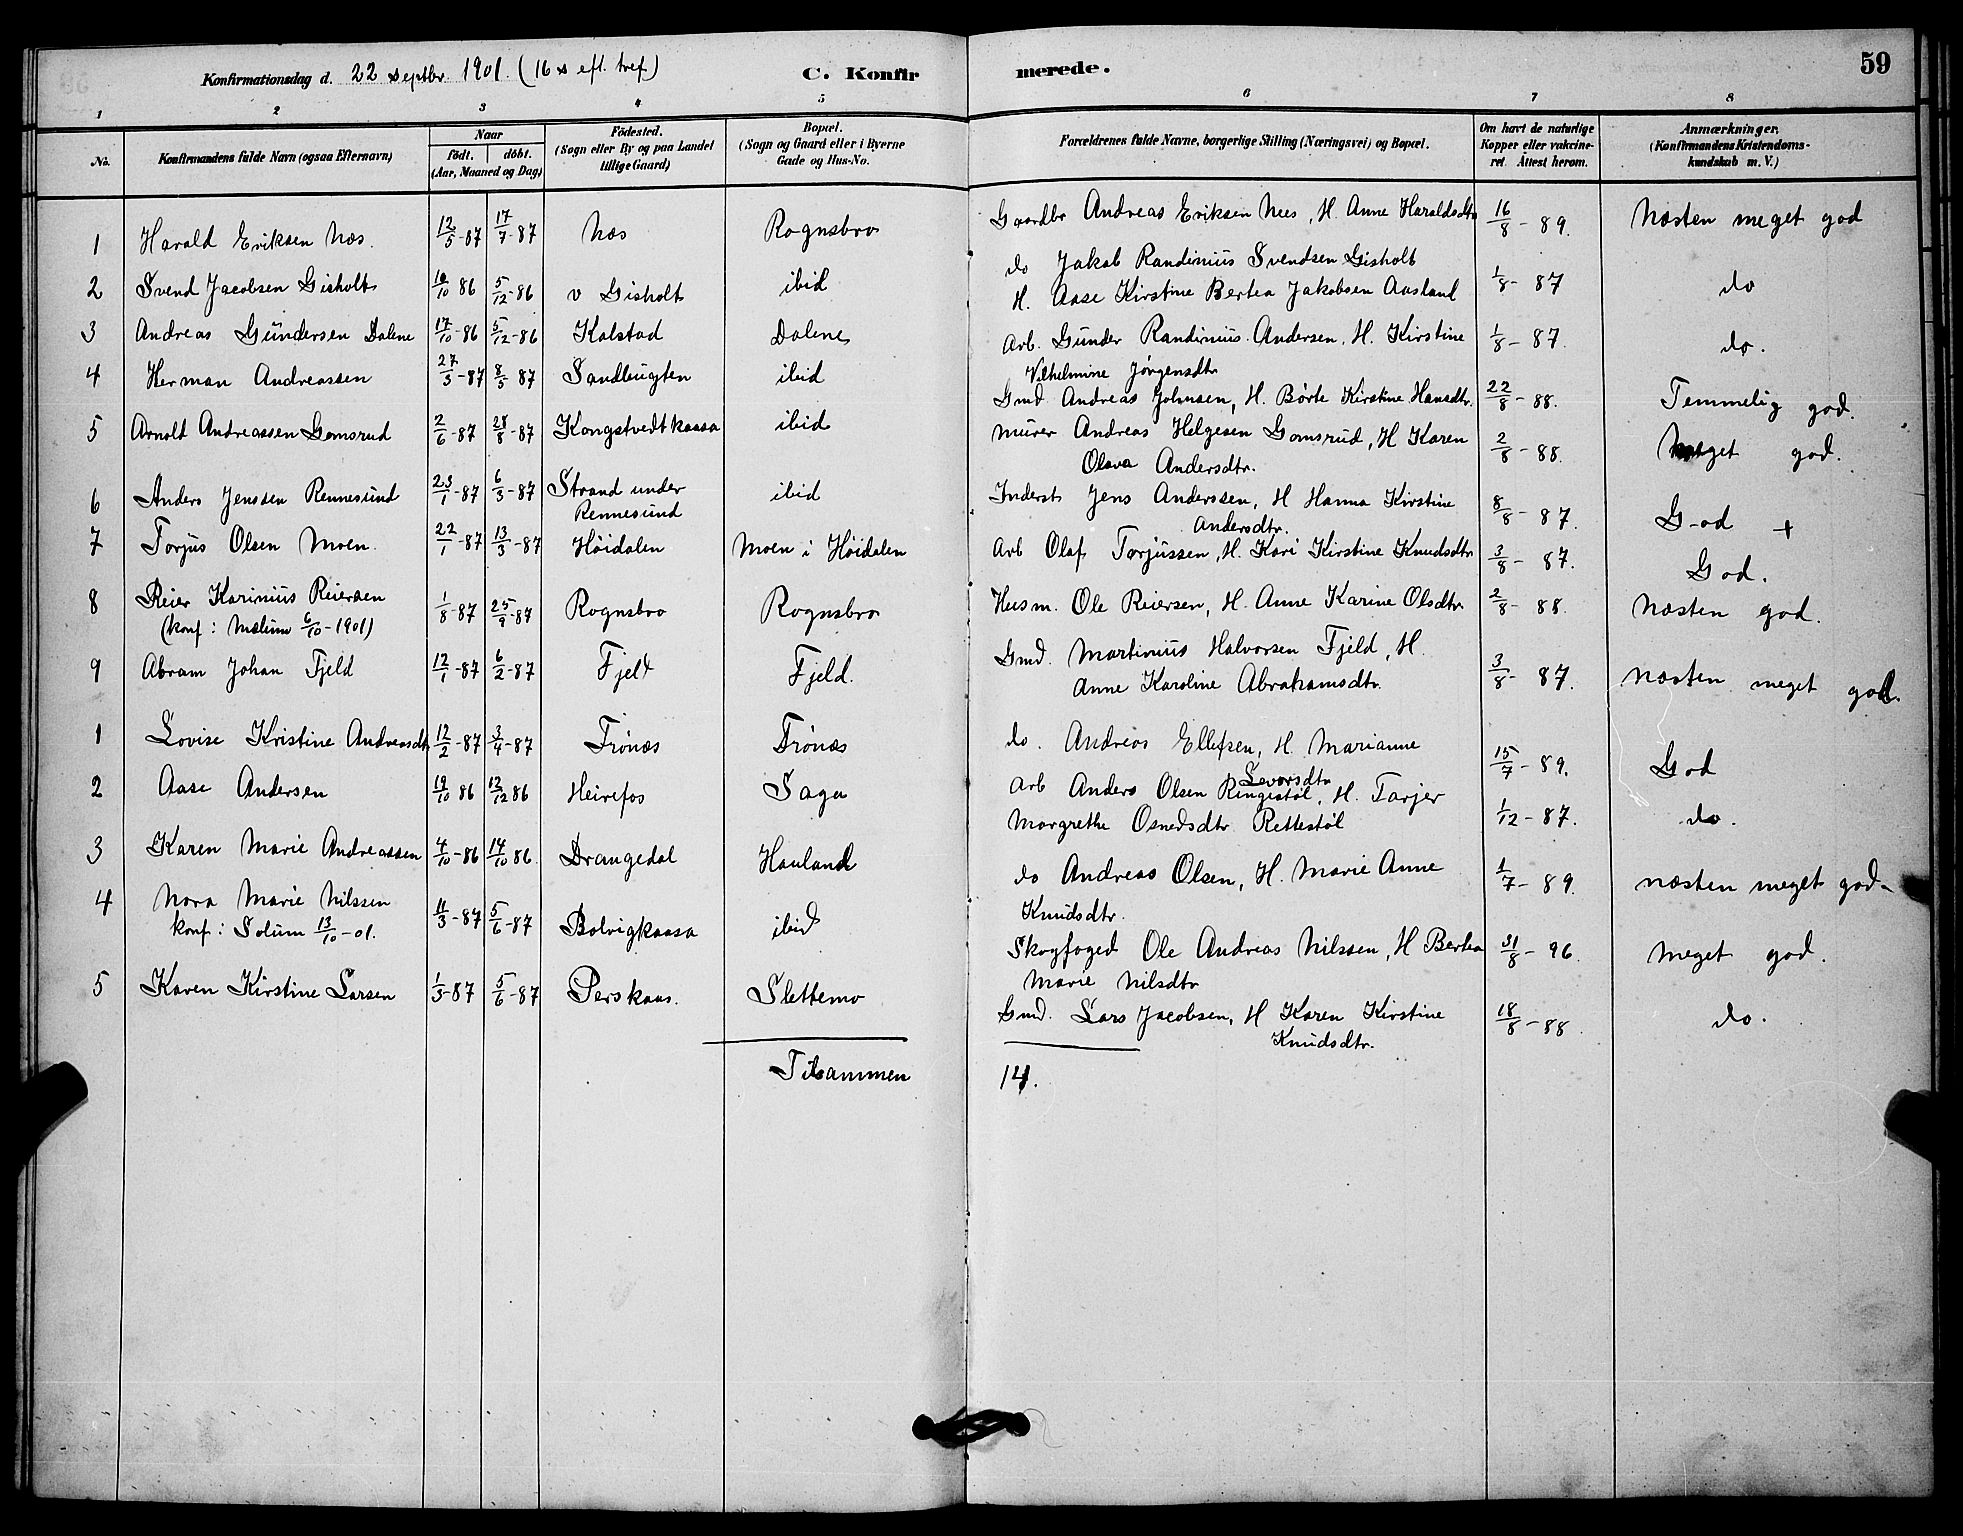 Konfirmationsdag d. 22 septbr. 1901. (16 s eft. tref) C. Konfirmerede. 59
1 2 3 4 5 6 7 8
No. Konfirmandens fulde Navn (ogsaa Efternavn) Naar födt. döbt. (Aar, Maaned og Dag) Födested. (Sogn eller By og paa Landet tillige Gaard) Bopæl. (Sogn og Gaard eller i Byerne Gade og Hus-No. Forældrenes fulde Navne, borgerlige Stilling (Næringsvei) og Bopæl. Om havt de naturlige Kopper eller vakcineret. Attest herom. Anmærkninger. (Konfirmandens Kristendomskundskab m. V.)
1 Harald Eriksen Næs. 12/5-87 17/7-87 Næs Rognsbro Gaardbr Andreas Eriksen Nees, H. Anne Haraldsdtr 16/8-89. Næsten meget god
2 Svend Jacobsen Gisholt 10/10 86 5/12-86 v Gisholt ibid do Jakob Randinius Svendsen Gisholt
H. Aase Kirstine Bertea Jakobsen Aasland 1/8-87 do
3 Andreas Gundersen Dalene 17/10-86 5/12-86 Kalstad Dalene Arb. Gunder Randinius Andersen, H. Kirstine
Vilhelmine Jörgensdtr 1/8-87. do.
4 Herman Andreassen 27/3-87 8/5 87 Sandbugten ibid Gmd Andreas Johnsen, H. Börte Kirstine Hansdtr. 22/8-88. Temmelig god.
5 Arnold Andreassen Gomsrud 2/6-87 28/8-87 Kongstvedtkaasa ibid Murer Andreas Helgesen Gomsrud, H Karen
Olava Andersdtr. 2/8-88. Meget god.
6 Anders Jenssen Rennesund 23/1-87 6/3-87 Strand under
Rennesund ibid Inderst Jens Anderssen, H Hanna Kirstine
Andersdtr. 8/8-87. God +
7 Torjus Olsen Moen. 22/1-87 13/3-87 Höidalen Moen i Höidalen Arb Olaf Torjussen, H. Kari Kirstine Knudsdtr 3/8-87. God.
8 Reier Karinius Reiersen
(konf: Mælum 6/10-1901) 1/8-87 25/9-87 Rognsbro Rognsbro Husm. Ole Reiersen, H. Anne Karine Olsdtr. 2/8-88. Næsten god.
9 Abram Johan Fjeld 12/1-87 6/2-87 Fjeld Fjeld. Gmd. Martinius Halvorsen Fjeld, H.
Anne Karoline Abrahamsdtr. 3/8-87. Næsten meget god.
1 Lovise Kristine Andreasdtr 12/2-87 3/4-87 Frönæs Frönæs do. Andreas Ellefsen, H. Marianne
Sevorsdtr 15/7-89. God
2 Aase Andersen 19/10 86 12/12 86 Heirefos Saga Arb Anders Olsen Ringestöl, H. Tarjer
Margrethe Osnedsdtr Rettestöl 1/12-87. do.
3 Karen Marie Andreassen 4/10-86 14/10 86 Drangedal Hauland do Andreas Olsen, H. Marie Anne
Knudsdtr. 1/7-89. næsten meget god-
4 Nora Marie Nilssen
konf: Solum 13/10-01. 11/3-87 5/6-87 Bolvigkaasa ibid Skogfoged Ole Andreas Nilssen, H Bertea
Marie Nilsdtr 31/8-96. Meget god.
5 Karen Kirstine Larsen 1/3-87 5/6-87 Perskaas. Slettemo Gmd. Lars Jacobsen, H Karen Kirstine
Knudsdtr. 18/8-88 do.
Tilsammen 14.